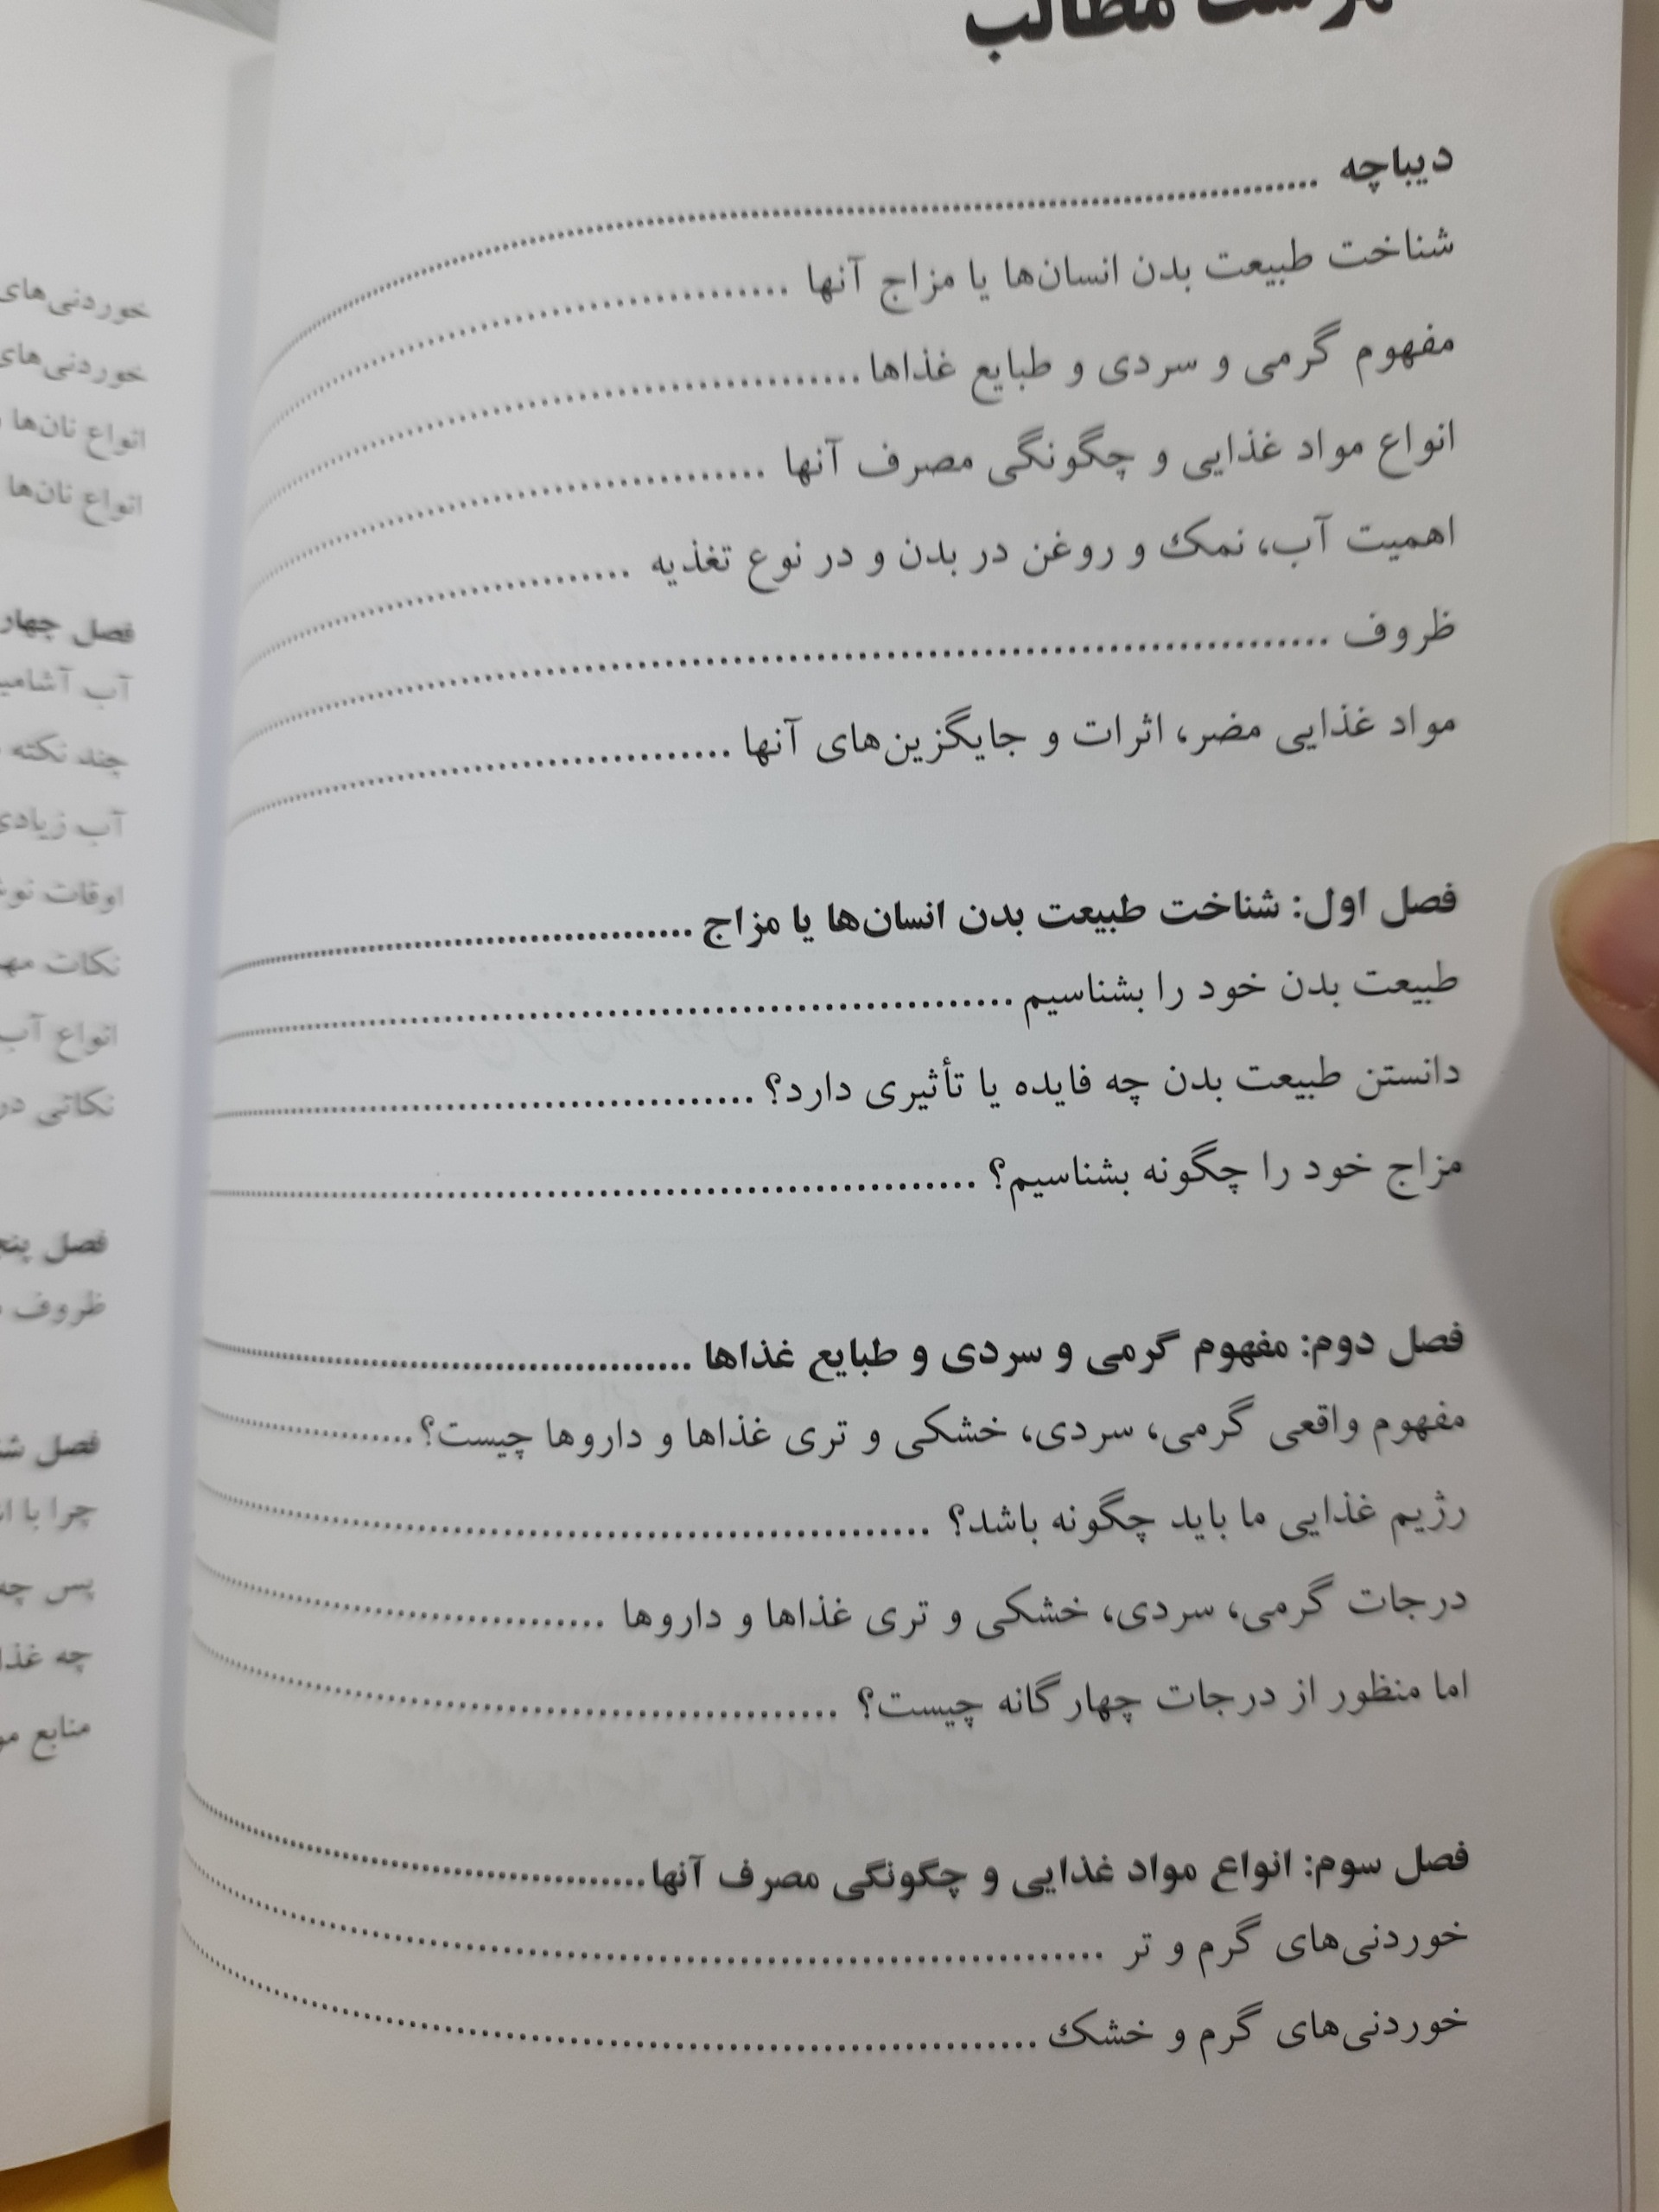 مطالب
دیباچه
شناخت طبیعت بدن انسان‌ها یا مزاج آنها
مفهوم گرمی و سردی و طبایع غذاها
انواع مواد غذایی و چگونگی مصرف آنها
اهمیت آب، نمک و روغن در بدن و در نوع تغذیه
ظروف
مواد غذایی مضر، اثرات و جایگزین‌های آنها
فصل اول: شناخت طبیعت بدن انسان‌ها یا مزاج
طبیعت بدن خود را بشناسیم
دانستن طبیعت بدن چه فایده یا تأثیری دارد؟
مزاج خود را چگونه بشناسیم؟
فصل دوم: مفهوم گرمی و سردی و طبایع غذاها
مفهوم واقعی گرمی، سردی، خشکی و تری غذاها و داروها چیست؟
رژیم غذایی ما باید چگونه باشد؟
درجات گرمی، سردی، خشکی و تری غذاها و داروها
اما منظور از درجات چهارگانه چیست؟
فصل سوم: انواع مواد غذایی و چگونگی مصرف آنها
خوردنی‌های گرم و تر
خوردنی‌های گرم و خشک
خوردنی‌های
خوردنی‌های
انواع نان‌ها
انواع نان‌ها
فصل
آب
چند نکته
آب
اوقات
نکات
انواع آب
نکاتی در
فصل
ظروف
فصل
چرا با
پس
چه
منابع